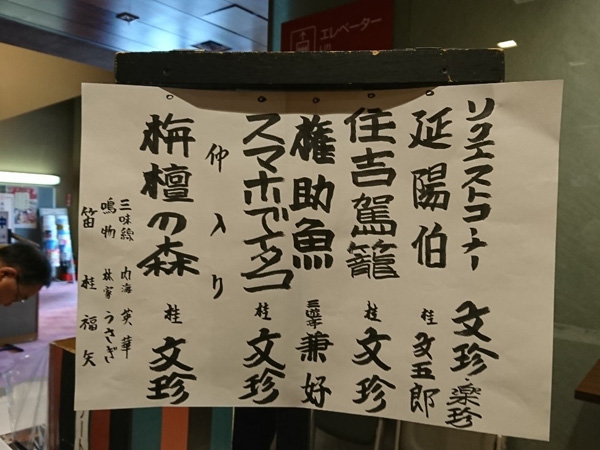 エレベーター
リクエストコーナー 文珍・楽珍
延陽伯 桂 文五郎
住吉駕籠 桂 文珍
権助魚 三遊亭 兼好
スマホでイタコ 桂 文珍
仲入り
栴檀の森 桂 文珍
三味線 内海 英華
鳴物 林家 うさぎ
笛 桂 福矢